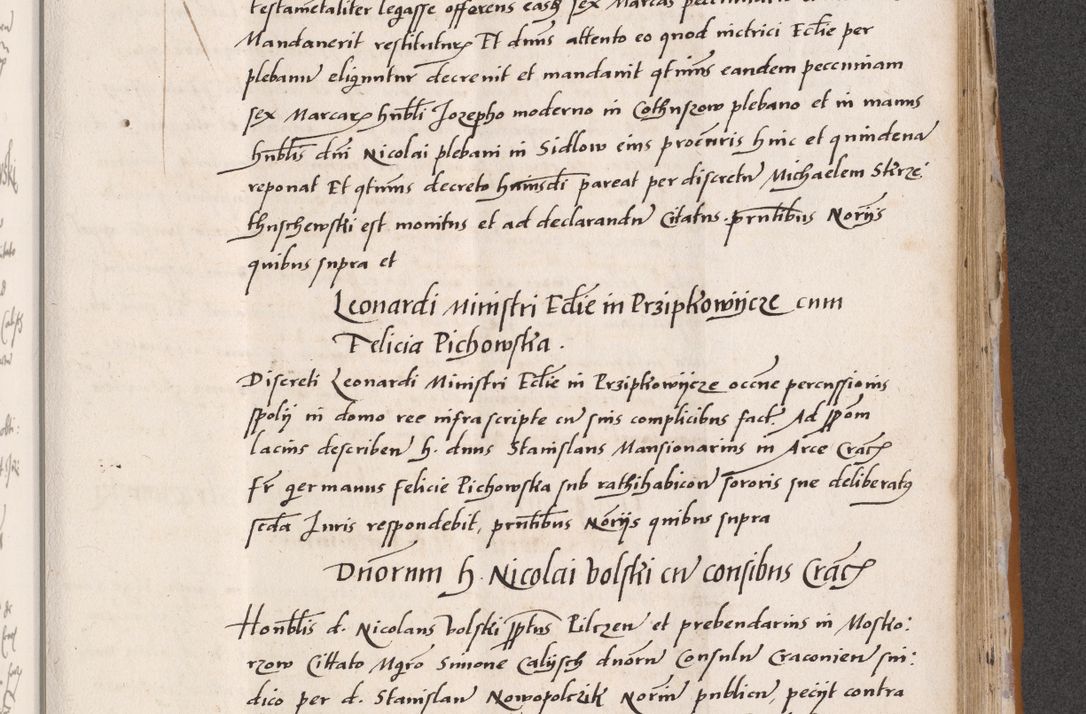 testametaliter legasse offerens easdē sex Marcas
Mandaverit restitutur Et dnus attento eo quod victrici Eccłie per
plebanu eliguntur decrevit et mandavit qtinus eandem peccuniam
sex Marcar hnbli Jozepho moderno in Cothuszow plebano et in manus
hnblis dni Nicolai plebani in Sidlow eius procuris hinc et quindena
reponat Et qtinus decreto huiusdi pareat per discretu Michaelem Strze:
thuschewski est monitus et ad declarandu Citatus. prntibus Norijs
quibus supra et
Leonardi Ministri Eccłie in Przipkowijcze cum
Felicia Pichowska .
Discreti Leonardi Ministri Eccłie in Przipkowijcze occne percussionis
spolij in domo ree infra scripte cu suis complicibus fact. Ad ppom
lacius describen h. dnus Stanislaus Mansionarius in Arce Crac
Fr germanus Felicie Pichowska sub rathihabicon sororis sue deliberatus
scda Juris respondebit, prntibus Norijs quibus supra
Dnorum h. Nicolai Volski cu consibus Crac
Honblis d. Nicolaus Volski pptus Pilczen et prebendarius in Mosko:
rzow Cittato Mgro Simone Calijsch dnoru Consulu Craconien sin:
dico per d. Stanislau Nowopolczik Noriu publicu, pecijt contra